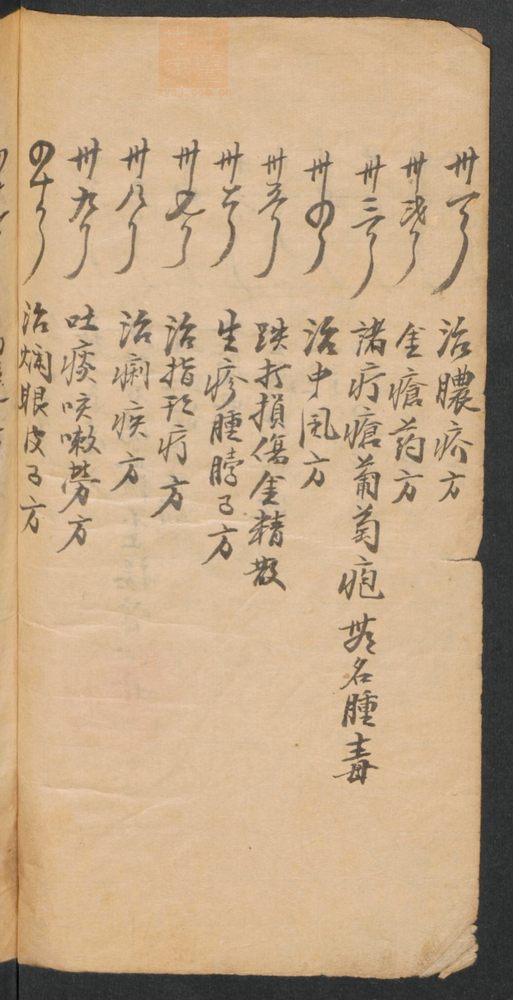 卅一 治膿疥方
卅弍 金瘡药方
卅三 諸疔瘡葡萄疱無名腫毒
卅四 治中風方
卅五 跌打損傷金精散
卅六 生疹腫脖子方
卅七 治指頂疔方
卅八 治痢疾方
卅九 吐痰咳嗽勞方
四十 治爛眼皮子方